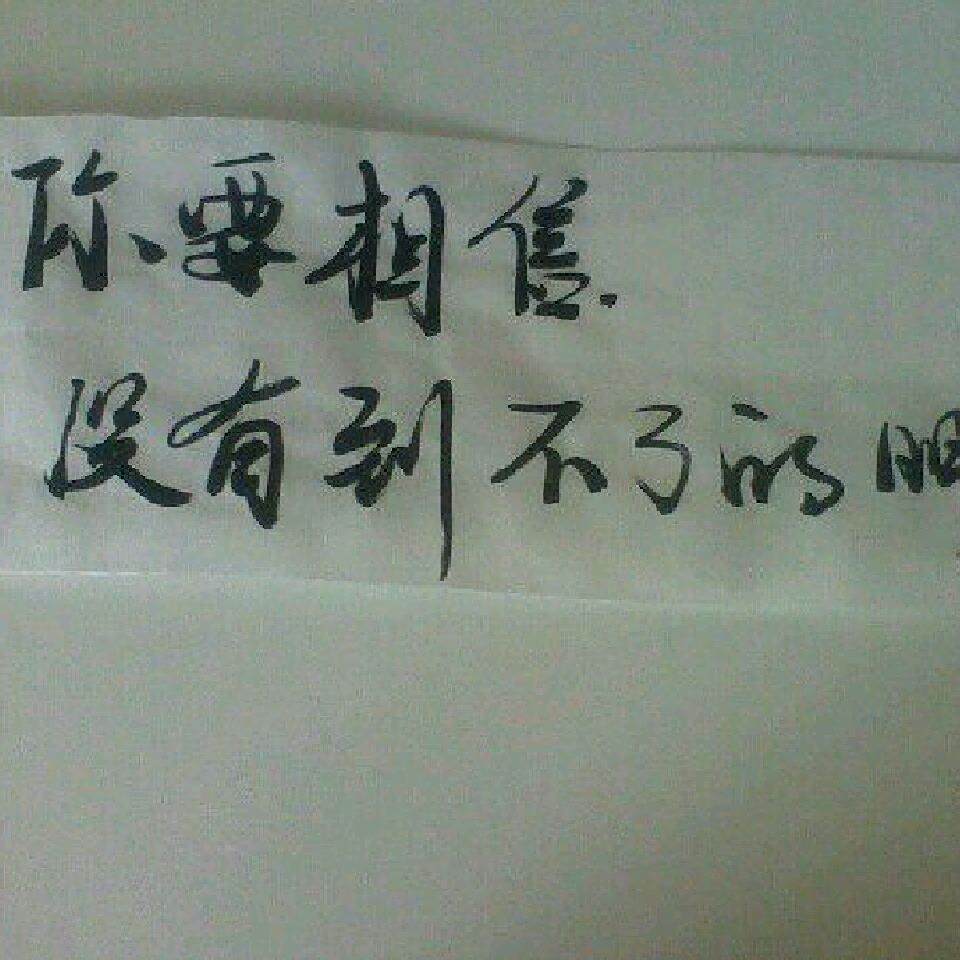 你要相信.
没有到不了的